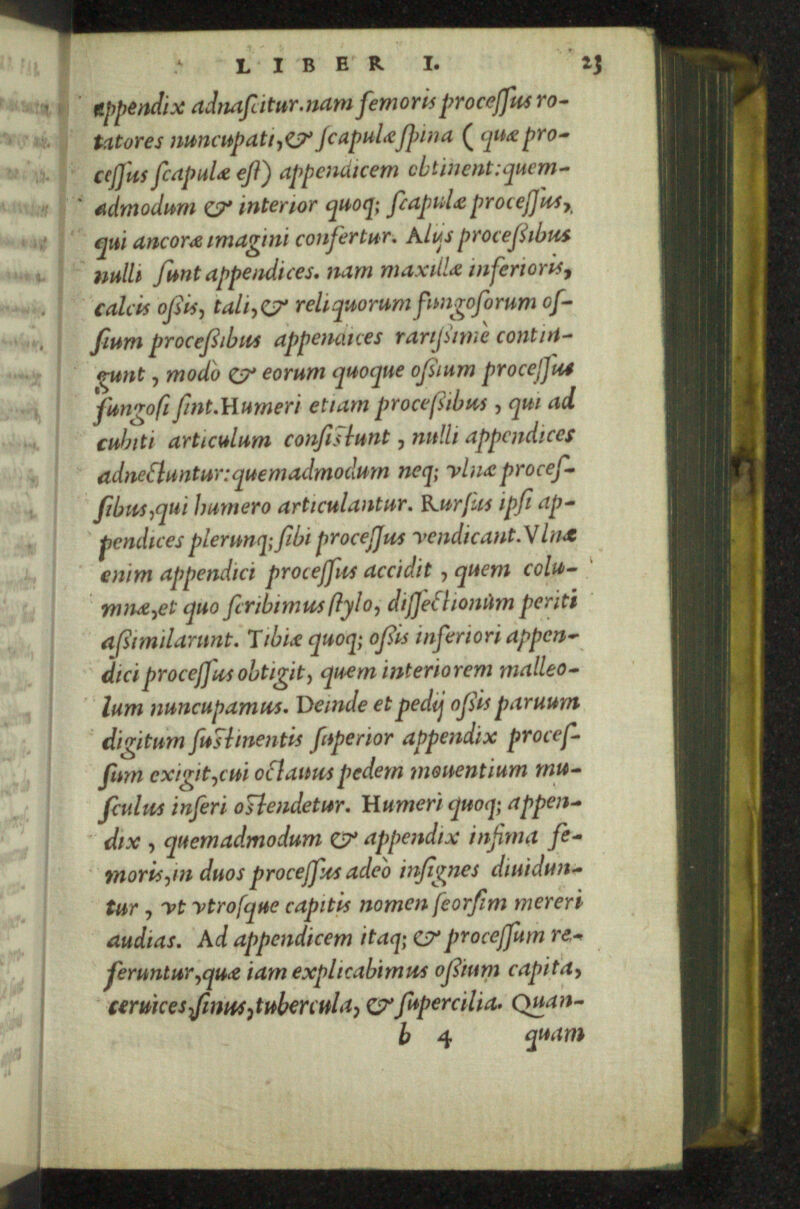 LIBER I. 23
appendix adnascitur. nam femoris processus ro-
tatores nuncupati, & scapulæ spina ( quæ pro-
cessus scapulæ est) appendicem obtinent: quem-
admodum & interior quoq; scapulæ processus,
qui ancoræ imagini confertur. Alijs proceßibus
nulli sunt appendices. nam maxillæ inferioris,
calcis oßis, tali, & reliquorum fungosorum os-
sium proceßibus appendices rarißimè contin-
gunt, modò & eorum quoque oßium processus
fungosi sint. Humeri etiam proceßibus, qui ad
cubiti articulum consistunt, nulli appendices
adnectuntur: quemadmodum neq; vlnæ proces-
sibus, qui humero articulantur. Rursus ipsi ap-
pendices plerunq; sibi processus vendicant. Vlnæ
enim appendici processus accidit, quem colu-
mnæ, et quo scribimus stylo, dissectionum periti
aßimilarunt. Tibiæ quoq; oßis inferiori appen-
dici processus obtigit, quem interiorem malleo-
lum nuncupamus. Deinde et pedij oßis paruum
digitum sustinentis superior appendix proces-
sum exigit, cui octauus pedem mouentium mu-
sculus inseri ostendetur. Humeri quoq; appen-
dix, quemadmodum & appendix infima fe-
moris, in duos processus adeò insignes diuidun-
tur, vt vtrosque capitis nomen seorsim mereri
audias. Ad appendicem itaq; & processum re-
feruntur, quæ iam explicabimus oßium capita,
ceruices, sinus, tubercula, & supercilia. Quan-
b 4 quam